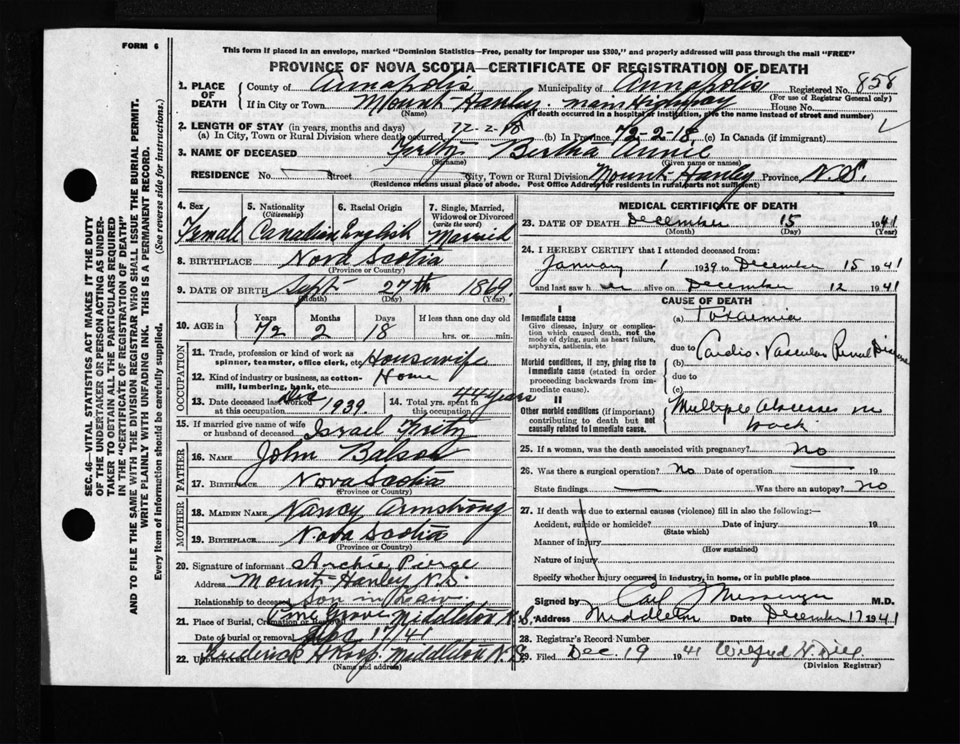 FORM 6
This form if placed in an envelope, marked "Dominion Statistics—Free, penalty for improper use $300," and properly addressed will pass through the mail "FREE"
PROVINCE OF NOVA SCOTIA—CERTIFICATE OF REGISTRATION OF DEATH
1. PLACE OF DEATH County of Annapolis Municipality of Annapolis Registered No. 858
(For use of Registrar General only)
If in City or Town Mount Hanley. main Highway House No.
(Name) (If death occurred in a hospital or institution, give the name instead of street and number)
2. LENGTH OF STAY (in years, months and days)
(a) In City, Town or Rural Division where death occurred 72-2-18 (b) In Province 72-2-18 (c) In Canada (if immigrant)
3. NAME OF DECEASED Fritz Bertha Annie
(Surname) (Given name or names)
RESIDENCE No. Street City, Town or Rural Division Mount Hanley Province N.S.
(Residence means usual place of abode. Post Office Address for residents in rural parts not sufficient)
4. Sex 5. Nationality (Citizenship) 6. Racial Origin 7. Single, Married, Widowed or Divorced (write the word)
Female Canadian English Married
8. BIRTHPLACE Nova Scotia
(Province or Country)
9. DATE OF BIRTH Sept 27th 1869
(Month) (Day) (Year)
10. AGE in Years Months Days If less than one day old
72 2 18 hrs. or min.
OCCUPATION
11. Trade, profession or kind of work as spinner, teamster, office clerk, etc. Housewife
12. Kind of industry or business, as cotton-mill, lumbering, bank, etc. Home
13. Date deceased last worked at this occupation Dec 1939. 14. Total yrs. spent in this occupation 44 years
15. If married give name of wife or husband of deceased Israel Fritz
FATHER
16. NAME John
17. BIRTHPLACE Nova Scotia
(Province or Country)
MOTHER
18. MAIDEN NAME Nancy Armstrong
19. BIRTHPLACE Nova Scotia
(Province or Country)
20. Signature of informant Archie
Address Mount Hanley N.S.
Relationship to deceased Son in Law.
21. Place of Burial, Cremation or Removal Pine Grove Middleton N.S.
Date of burial or removal Dec 17/41
22. UNDERTAKER Frederick Middleton N.S.
(Name and address)
MEDICAL CERTIFICATE OF DEATH
23. DATE OF DEATH December 15 1941
(Month) (Day) (Year)
24. I HEREBY CERTIFY that I attended deceased from:
January 1 1939 to December 15 1941
and last saw her alive on December 12 1941
CAUSE OF DEATH
Immediate cause
Give disease, injury or complication which caused death, not the mode of dying, such as heart failure, asphyxia, asthenia, etc.
(a) Toxaemia
due to Cardio-Vascular Renal Disease
Morbid conditions, if any, giving rise to immediate cause (stated in order proceeding backwards from immediate cause).
(b)
due to
(c)
II
Other morbid conditions (if important) contributing to death but not causally related to immediate cause.
Multiple Abscesses in back
25. If a woman, was the death associated with pregnancy? no
26. Was there a surgical operation? no Date of operation 19
State findings Was there an autopsy? no
27. If death was due to external causes (violence) fill in also the following:—
Accident, suicide or homicide? Date of injury 19
(State which)
Manner of injury
(How sustained)
Nature of injury
Specify whether injury occurred in industry, in home, or in public place
Signed by Messenger M.D.
Address Middleton Date December 17 1941
28. Registrar's Record Number
29. Filed Dec. 19 1941 Wilfred N.
(Division Registrar)
SEC. 46—VITAL STATISTICS ACT MAKES IT THE DUTY
OF THE UNDERTAKER OR PERSON ACTING AS UNDER-
TAKER TO OBTAIN ALL THE PARTICULARS REQUIRED
IN THE "CERTIFICATE OF REGISTRATION OF DEATH"
AND TO FILE THE SAME WITH THE DIVISION REGISTRAR WHO SHALL ISSUE THE BURIAL PERMIT.
WRITE PLAINLY WITH UNFADING INK. THIS IS A PERMANENT RECORD.
Every item of information should be carefully supplied. (See reverse side for instructions.)